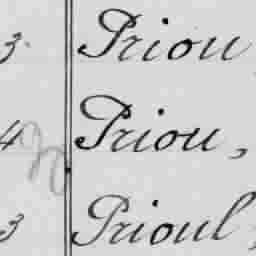 3 Priou
4 Priou,
3 Prioul,